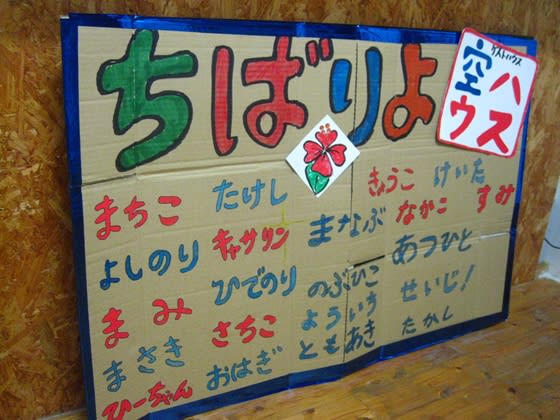 ちばりよ
ゲストハウス
空ハウス
まちこ
よしのり
まみ
まさき
ひーちゃん
たけし
キャサリン
ひでのり
さちこ
おはぎ
まなぶ
のぶひこ
よういち
ともあき
きょうこ
なかこ
あつひと
せいじ!
たかし
けいた
すみ